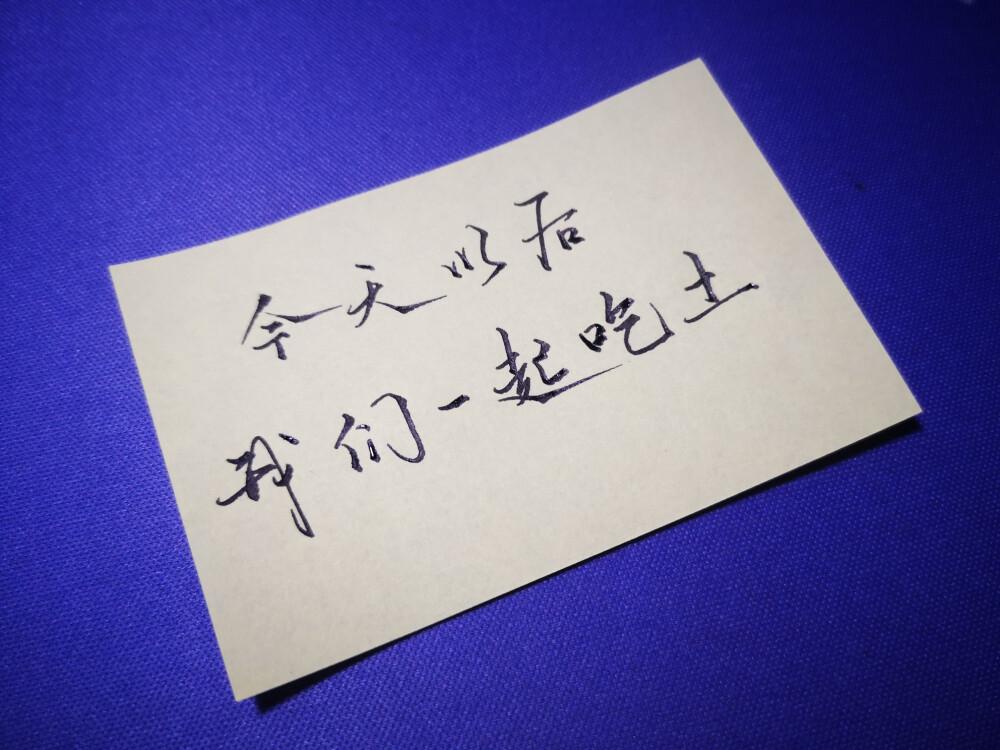 今天以后
我们一起吃土